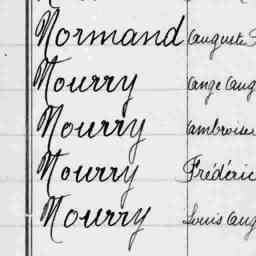 Normand Auguste
Nourry Ange Aug
Nourry Ambroise
Nourry Frédéric
Nourry Louis Aug